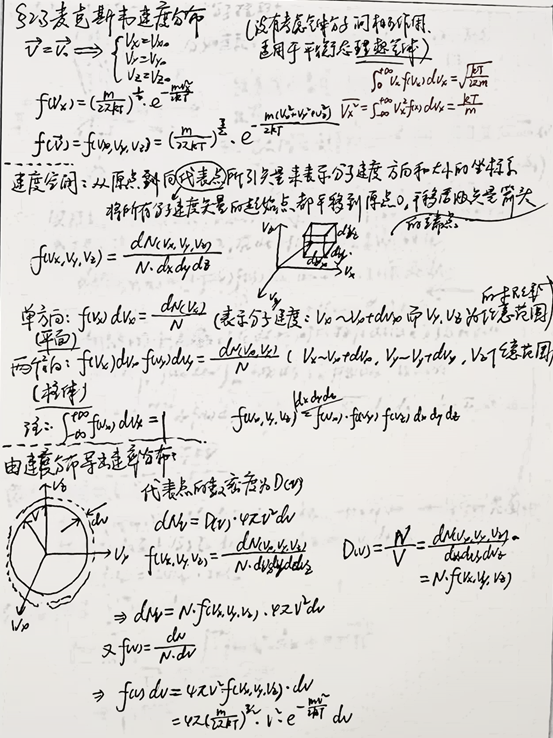 §2.3 麦克斯韦速度分布 (没有考虑气体分子间相互作用,
适用于平衡态理想气体)
v⃗ = v⃗₀ ⟹ { Vx=Vx₀ Vy=Vy₀ Vz=Vz₀
∫₀^{+∞} Vx f(Vx) dVx = √(kT/2πm)
f(Vx) = (m/2πkT)^{1/2} · e^{-mVx²/2kT}
V̄x² = ∫_{-∞}^{+∞} Vx² f(Vx) dVx = kT/m
f(v⃗) = f(Vx,Vy,Vz) = (m/2πkT)^{3/2} · e^{-m(Vx²+Vy²+Vz²)/2kT}
速度空间: 从原点到向代表点所引矢量来表示分子速度方向和大小的坐标系
将所有分子速度矢量的起始点都平移到原点O,平移后 点是箭头
的端点
f(Vx,Vy,Vz) = dN(Vx,Vy,Vz) / N·dxdydz
Vz
Vx
Vy
单方向: f(Vx)dVx = dN(Vx)/N (表示分子速度: Vx~Vx+dVx 而 Vy,Vz 为任意范围)
(平面)
两个方向: f(Vx)dVx f(Vy)dVy = dN(Vx,Vy)/N (Vx~Vx+dVx, Vy~Vy+dVy, Vz任意范围)
(柱体)
注: ∫_{-∞}^{+∞} f(Vx) dVx = 1
f(Vx,Vy,Vz) dxdydz = f(Vx)·f(Vy) f(Vz) dx dy dz
由速度分布导出速率分布:
代表点的数密度为D(v)
Vz
dv
V
Vy
Vx
dNv = D(v)·4πv²dv
f(Vx,Vy,Vz) = dN(Vx,Vy,Vz) / N·dVxdVydVz
D(v) = N/V = dN(Vx,Vy,Vz) / dVxdVydVz
= N·f(Vx,Vy,Vz)
⇒ dNv = N·f(Vx,Vy,Vz)·4πv²dv
又 f(v) = dN / N·dv
⇒ f(v)dv = 4πv²f(Vx,Vy,Vz)·dv
= 4π(m/2πkT)^{3/2}·v²·e^{-mv²/2kT} dv